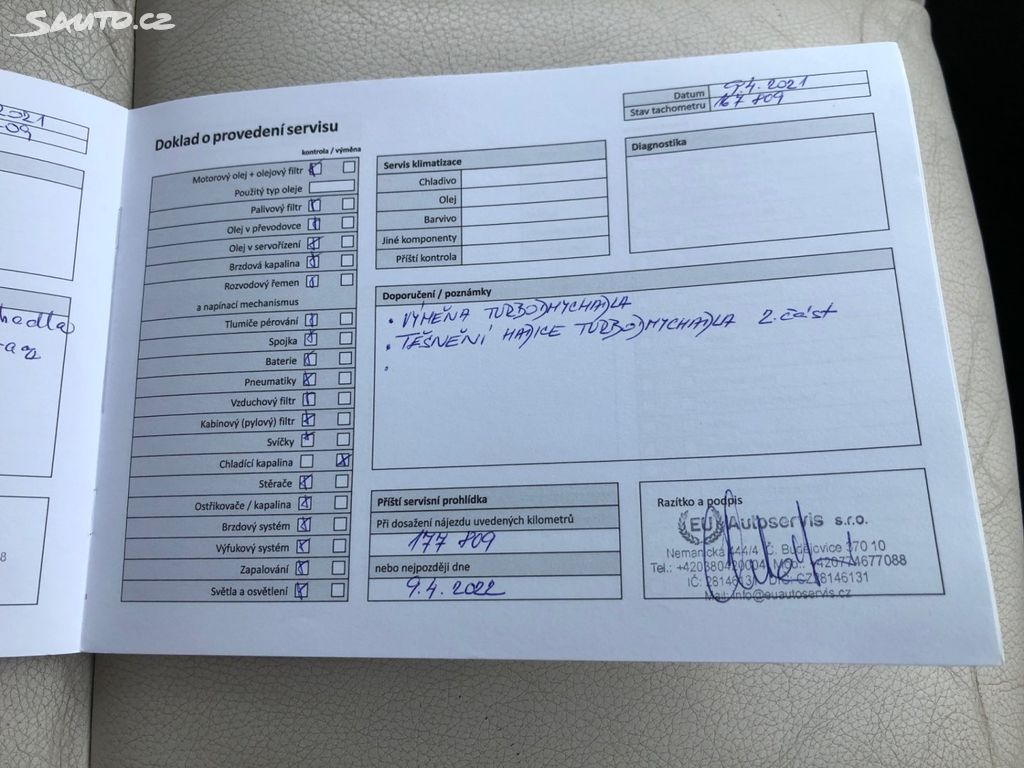 SAUTO.CZ
2021
Doklad o provedení servisu
kontrola / výměna
Motorový olej + olejový filtr
Použitý typ oleje
Palivový filtr
Olej v převodovce
Olej v servořízení
Brzdová kapalina
Rozvodový řemen
a napínací mechanismus
Tlumiče pérování
Spojka
Baterie
Pneumatiky
Vzduchový filtr
Kabinový (pylový) filtr
Svíčky
Chladící kapalina
Stěrače
Ostřikovače / kapalina
Brzdový systém
Výfukový systém
Zapalování
Světla a osvětlení
Servis klimatizace
Chladivo
Olej
Barvivo
Jiné komponenty
Příští kontrola
Datum 9.4. 2021
Stav tachometru 167 809
Diagnostika
Doporučení / poznámky
• VÝMĚNA TURBODMYCHADLA
• TĚSNĚNÍ HADICE TURBODMYCHADLA 2. část
•
Příští servisní prohlídka
Při dosažení nájezdu uvedených kilometrů
177 809
nebo nejpozději dne
9.4. 2022
Razítko a podpis
EU Autoservis s.r.o.
Nemanická 444/4 Č. Budějovice 370 10
Tel.: +420380420004 Mob.: +420774677088
IČ: 28146131 DIČ: CZ28146131
Mail: info@euautoservis.cz